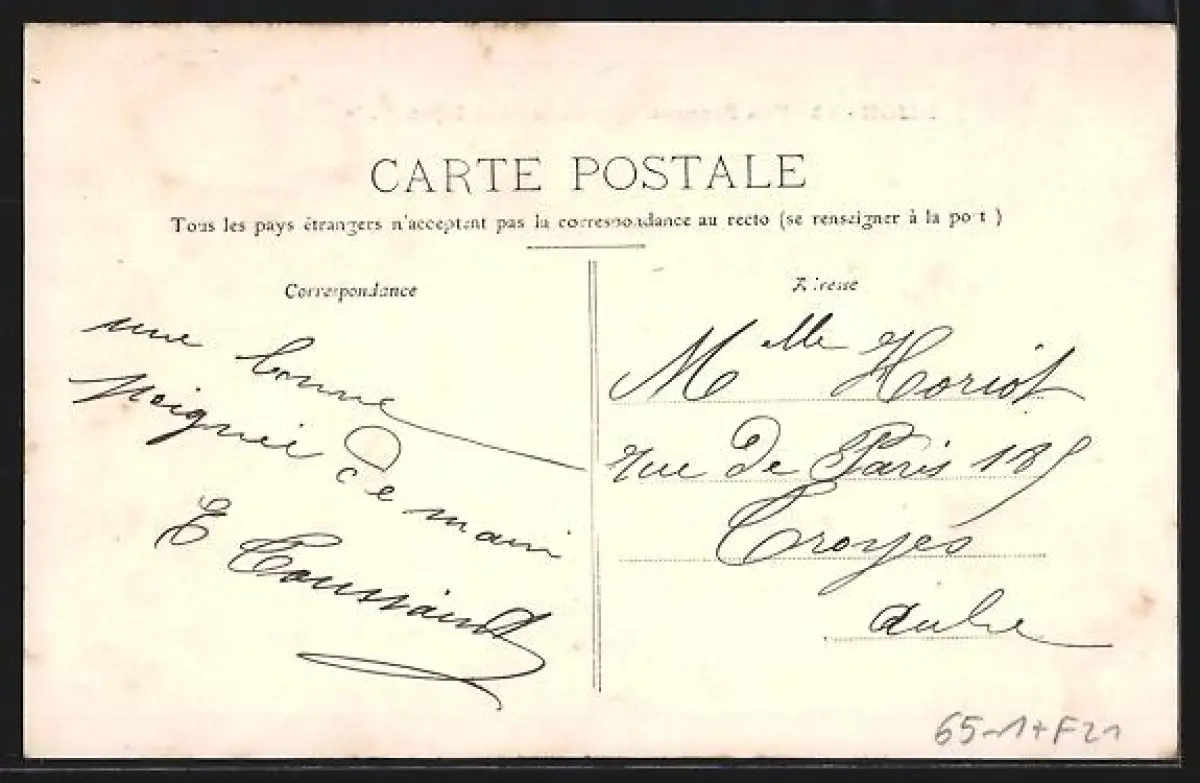 CARTE POSTALE
Tous les pays étrangers n'acceptent pas la correspondance au recto (se renseigner à la poste)
Correspondance
une bonne
poignée de main
E Toussaint
Adresse
Melle Horiot
rue de Paris 189
Troyes
Aube
65-1+F21